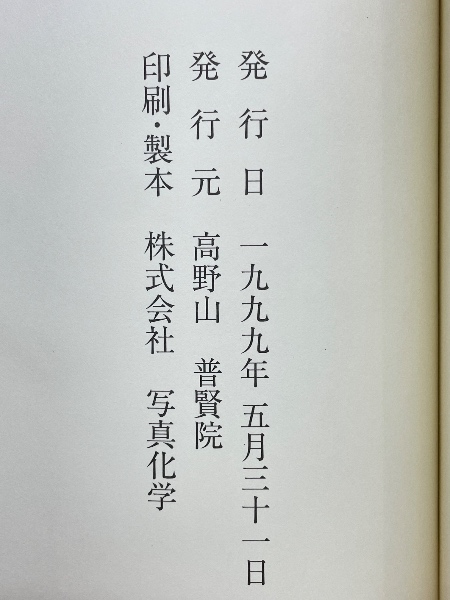 発行日 一九九九年 五月三十一日
発行元 高野山 普賢院
印刷・製本 株式会社 写真化学